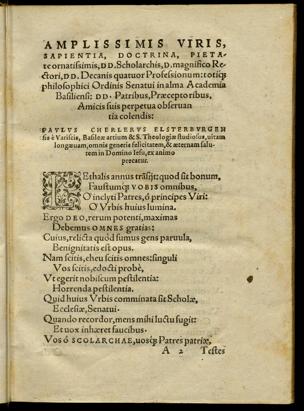 AMPLISSIMIS VIRIS,
SAPIENTIA, DOCTRINA, PIETA-
te ornatissimis, DD. Scholarchis, D. magnifico Re-
ctori, DD. Decanis quatuor Professionum: totiq́;
philosophici Ordinis Senatui in alma Academia
Basiliensi: DD. Patribus, Præceptoribus,
Amicis suis perpetua obseruan
tia colendis:
PAVLVS CHERLERVS ELSTERBVRGEN
sis è Variscis, Basileæ artium & S. Theologiæ studiosus, uitam
longæuam, omnis generis felicitatem, & æternam salu-
tem in Domino Iesu, ex animo
precatur.
LEthalis annus trāsijt: quod sit bonum,
Faustumq́; VOBIS omnibus,
O inclyti Patres, ô principes Viri:
O Vrbis huius lumina.
Ergo DEO, rerum potenti, maximas
Debemus OMNES gratias:
Cuius, relicta quòd sumus gens paruula,
Benignitatis est opus.
Nam scitis, eheu scitis omnes: singuli
Vos scitis, edocti probè,
Vt egerit nobiscum pestilentia:
Horrenda pestilentia.
Quid huius Vrbis comminata sit Scholæ,
Ecclesiæ, Senatui.
Quando recordor, mens mihi luctu fugit:
Et uox inhæret faucibus.
Vos ô SCOLARCHAE, uosq́; Patres patriæ,
A 2 Testes